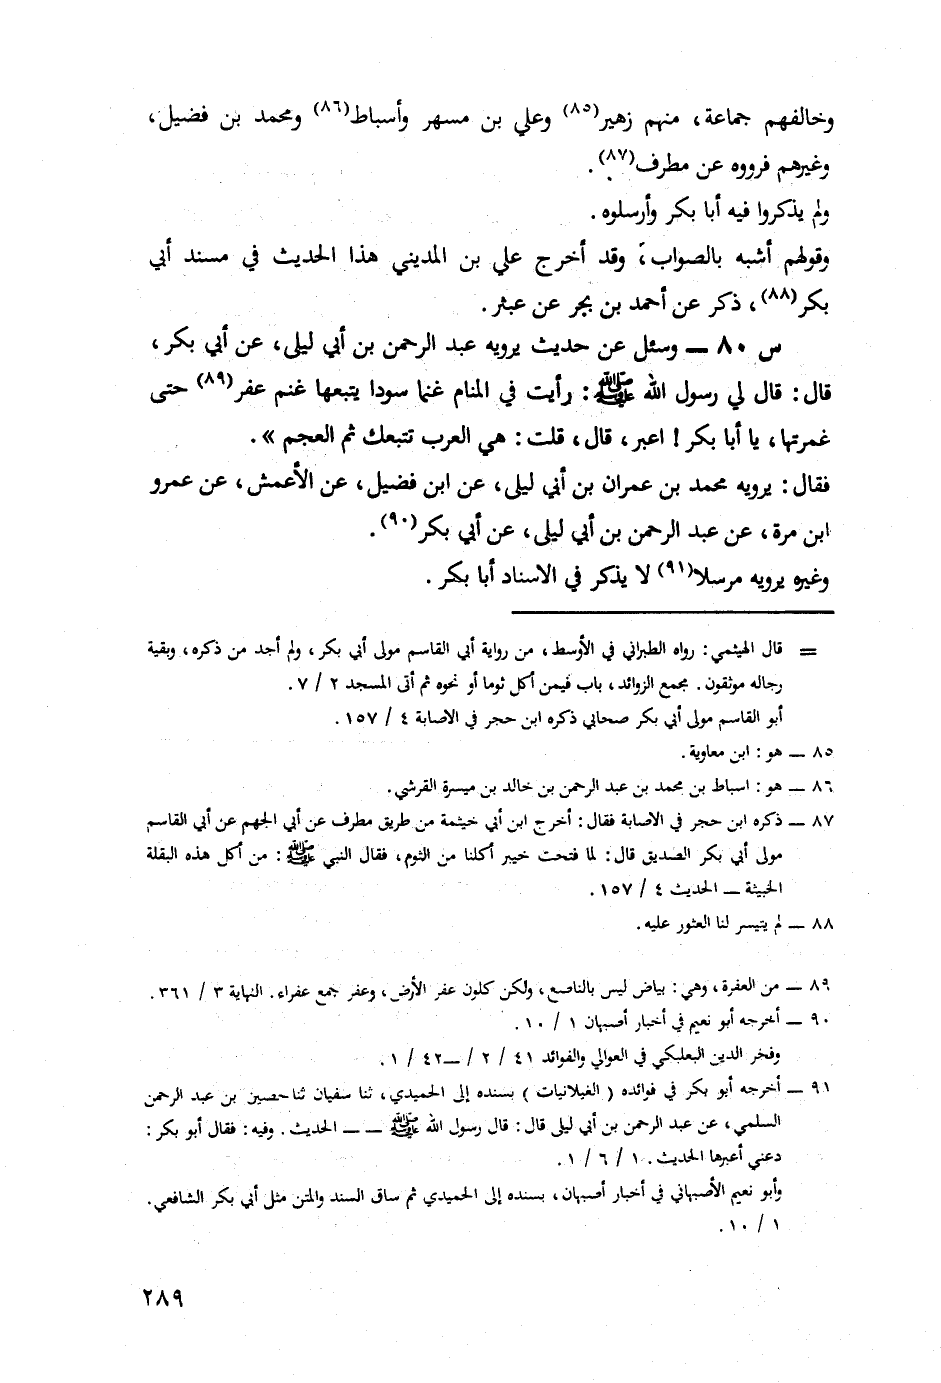 وخالفهم جماعة، منهم زهير(٨٥) وعلي بن مسهر وأسباط(٨٦) ومحمد بن فضيل،
وغيرهم فرووه عن مطرف(٨٧).
ولم يذكروا فيه أبا بكر وأرسلوه.
وقولهم أشبه بالصواب، وقد أخرج علي بن المديني هذا الحديث في مسند أبي
بكر(٨٨)، ذكر عن أحمد بن بجر عن عبثر.
س ٨٠ ــ وسئل عن حديث يرويه عبد الرحمن بن أبي ليلى، عن أبي بكر،
قال: قال لي رسول الله ﷺ: رأيت في المنام غنما سودا يتبعها غنم عفر(٨٩) حتى
غمرتها، يا أبا بكر! اعبر، قال، قلت: هي العرب تتبعك ثم العجم».
فقال: يرويه محمد بن عمران بن أبي ليلى، عن ابن فضيل، عن الأعمش، عن عمرو
ابن مرة، عن عبد الرحمن بن أبي ليلى، عن أبي بكر(٩٠).
وغيره يرويه مرسلا(٩١) لا يذكر في الاسناد أبا بكر.
= قال الهيثمي: رواه الطبراني في الأوسط، من رواية أبي القاسم مولى أبي بكر، ولم أجد من ذكره، وبقية
رجاله موثقون. مجمع الزوائد، باب فيمن أكل ثوما أو نحوه ثم أتى المسجد ٢ / ٧.
أبو القاسم مولى أبي بكر صحابي ذكره ابن حجر في الاصابة ٤ / ١٥٧.
٨٥ ــ هو: ابن معاوية.
٨٦ ــ هو: اسباط بن محمد بن عبد الرحمن بن خالد بن ميسرة القرشي.
٨٧ ــ ذكره ابن حجر في الاصابة فقال: أخرج ابن أبي خيثمة من طريق مطرف عن أبي الجهم عن أبي القاسم
مولى أبي بكر الصديق قال: لما فتحت خيبر أكلنا من الثوم، فقال النبي ﷺ: من أكل هذه البقلة
الخبيثة ــ الحديث ٤ / ١٥٧.
٨٨ ــ لم يتيسر لنا العثور عليه.
٨٩ ــ من العفرة، وهي: بياض ليس بالناصع، ولكن كلون عفر الأرض، وعفر جمع عفراء. النهاية ٣ / ٣٦١.
٩٠ ــ أخرجه أبو نعيم في أخبار أصبهان ١ / ١٠.
وفخر الدين البعلبكي في العوالي والفوائد ٤١ / ٢ / ــ٤٢ / ١.
٩١ ــ أخرجه أبو بكر في فوائده ( الغيلانيات ) بسنده إلى الحميدي، ثنا سفيان ثنا حصين بن عبد الرحمن
السلمي، عن عبد الرحمن بن أبي ليلى قال: قال رسول الله ﷺ ــ ــ الحديث. وفيه: فقال أبو بكر:
دعني أعبرها الحديث. ١ / ٦ / ١.
وأبو نعيم الأصبهاني في أخبار أصبهان، بسنده إلى الحميدي ثم ساق السند والمتن مثل أبي بكر الشافعي.
١ / ١٠.
٢٨٩